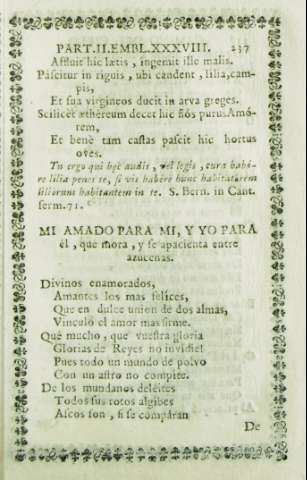 PART.II.EMBL.XXXVIII. 237
Affluit hic lætis , ingemit ille malis.
Pascitur in riguis , ubi candent , lilia, cam-
pis,
Et sua virgineos ducit in arva greges.
Scilicet æthereum decet hic flós purus Amó-
rem,
Et benè tam castas pascit hic hortus
oves.
Tu ergo qui hæc audis , vel legis , cura habé-
re lilia penes te, si vis habére hunc habitatorem
liliorum habitantem in te. S. Bern. in Cant.
serm.71.
MI AMADO PARA MI, Y YO PARA
él , que mora , y se apacienta entre
azucenas.
Divinos enamorados,
Amantes los mas felices,
Que en dulce union de dos almas,
Vinculó el amor mas firme.
Què mucho , que vuestra gloria
Glorias de Reyes no invidie!
Pues todo un mundo de polvo
Con un astro no compite.
De los mundanos deléites
Todos sus rotos algibes
Ascos son , si se compáran
De